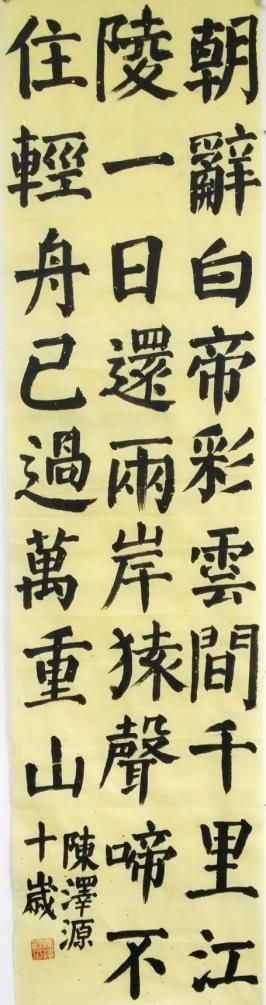 朝辭白帝彩雲間千里江
陵一日還兩岸猿聲啼不
住輕舟已過萬重山
陳澤源
十歲